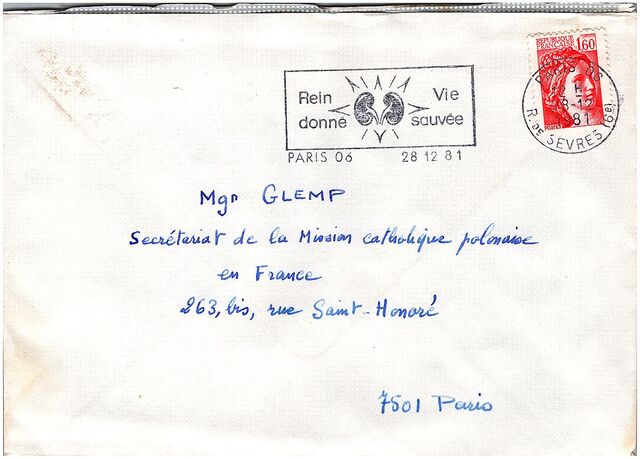 REPUBLIQUE
FRANÇAISE 1,60
POSTES
Rein Vie
donné sauvée
PARIS 06 28 12 81
PARIS 06
28-12
1981
R. DE SEVRES (6e)
Mgr GLEMP
Secrétariat de la Mission catholique polonaise
en France
263, bis, rue Saint-Honoré
7501 Paris